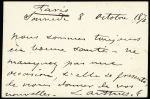 Paris
Samedi 8 Octobre 187
Nous sommes toujours
en bonne santé - ne
manquez pas une
occasion, s'elle se présente
de nous donner de vos
nouvelles.